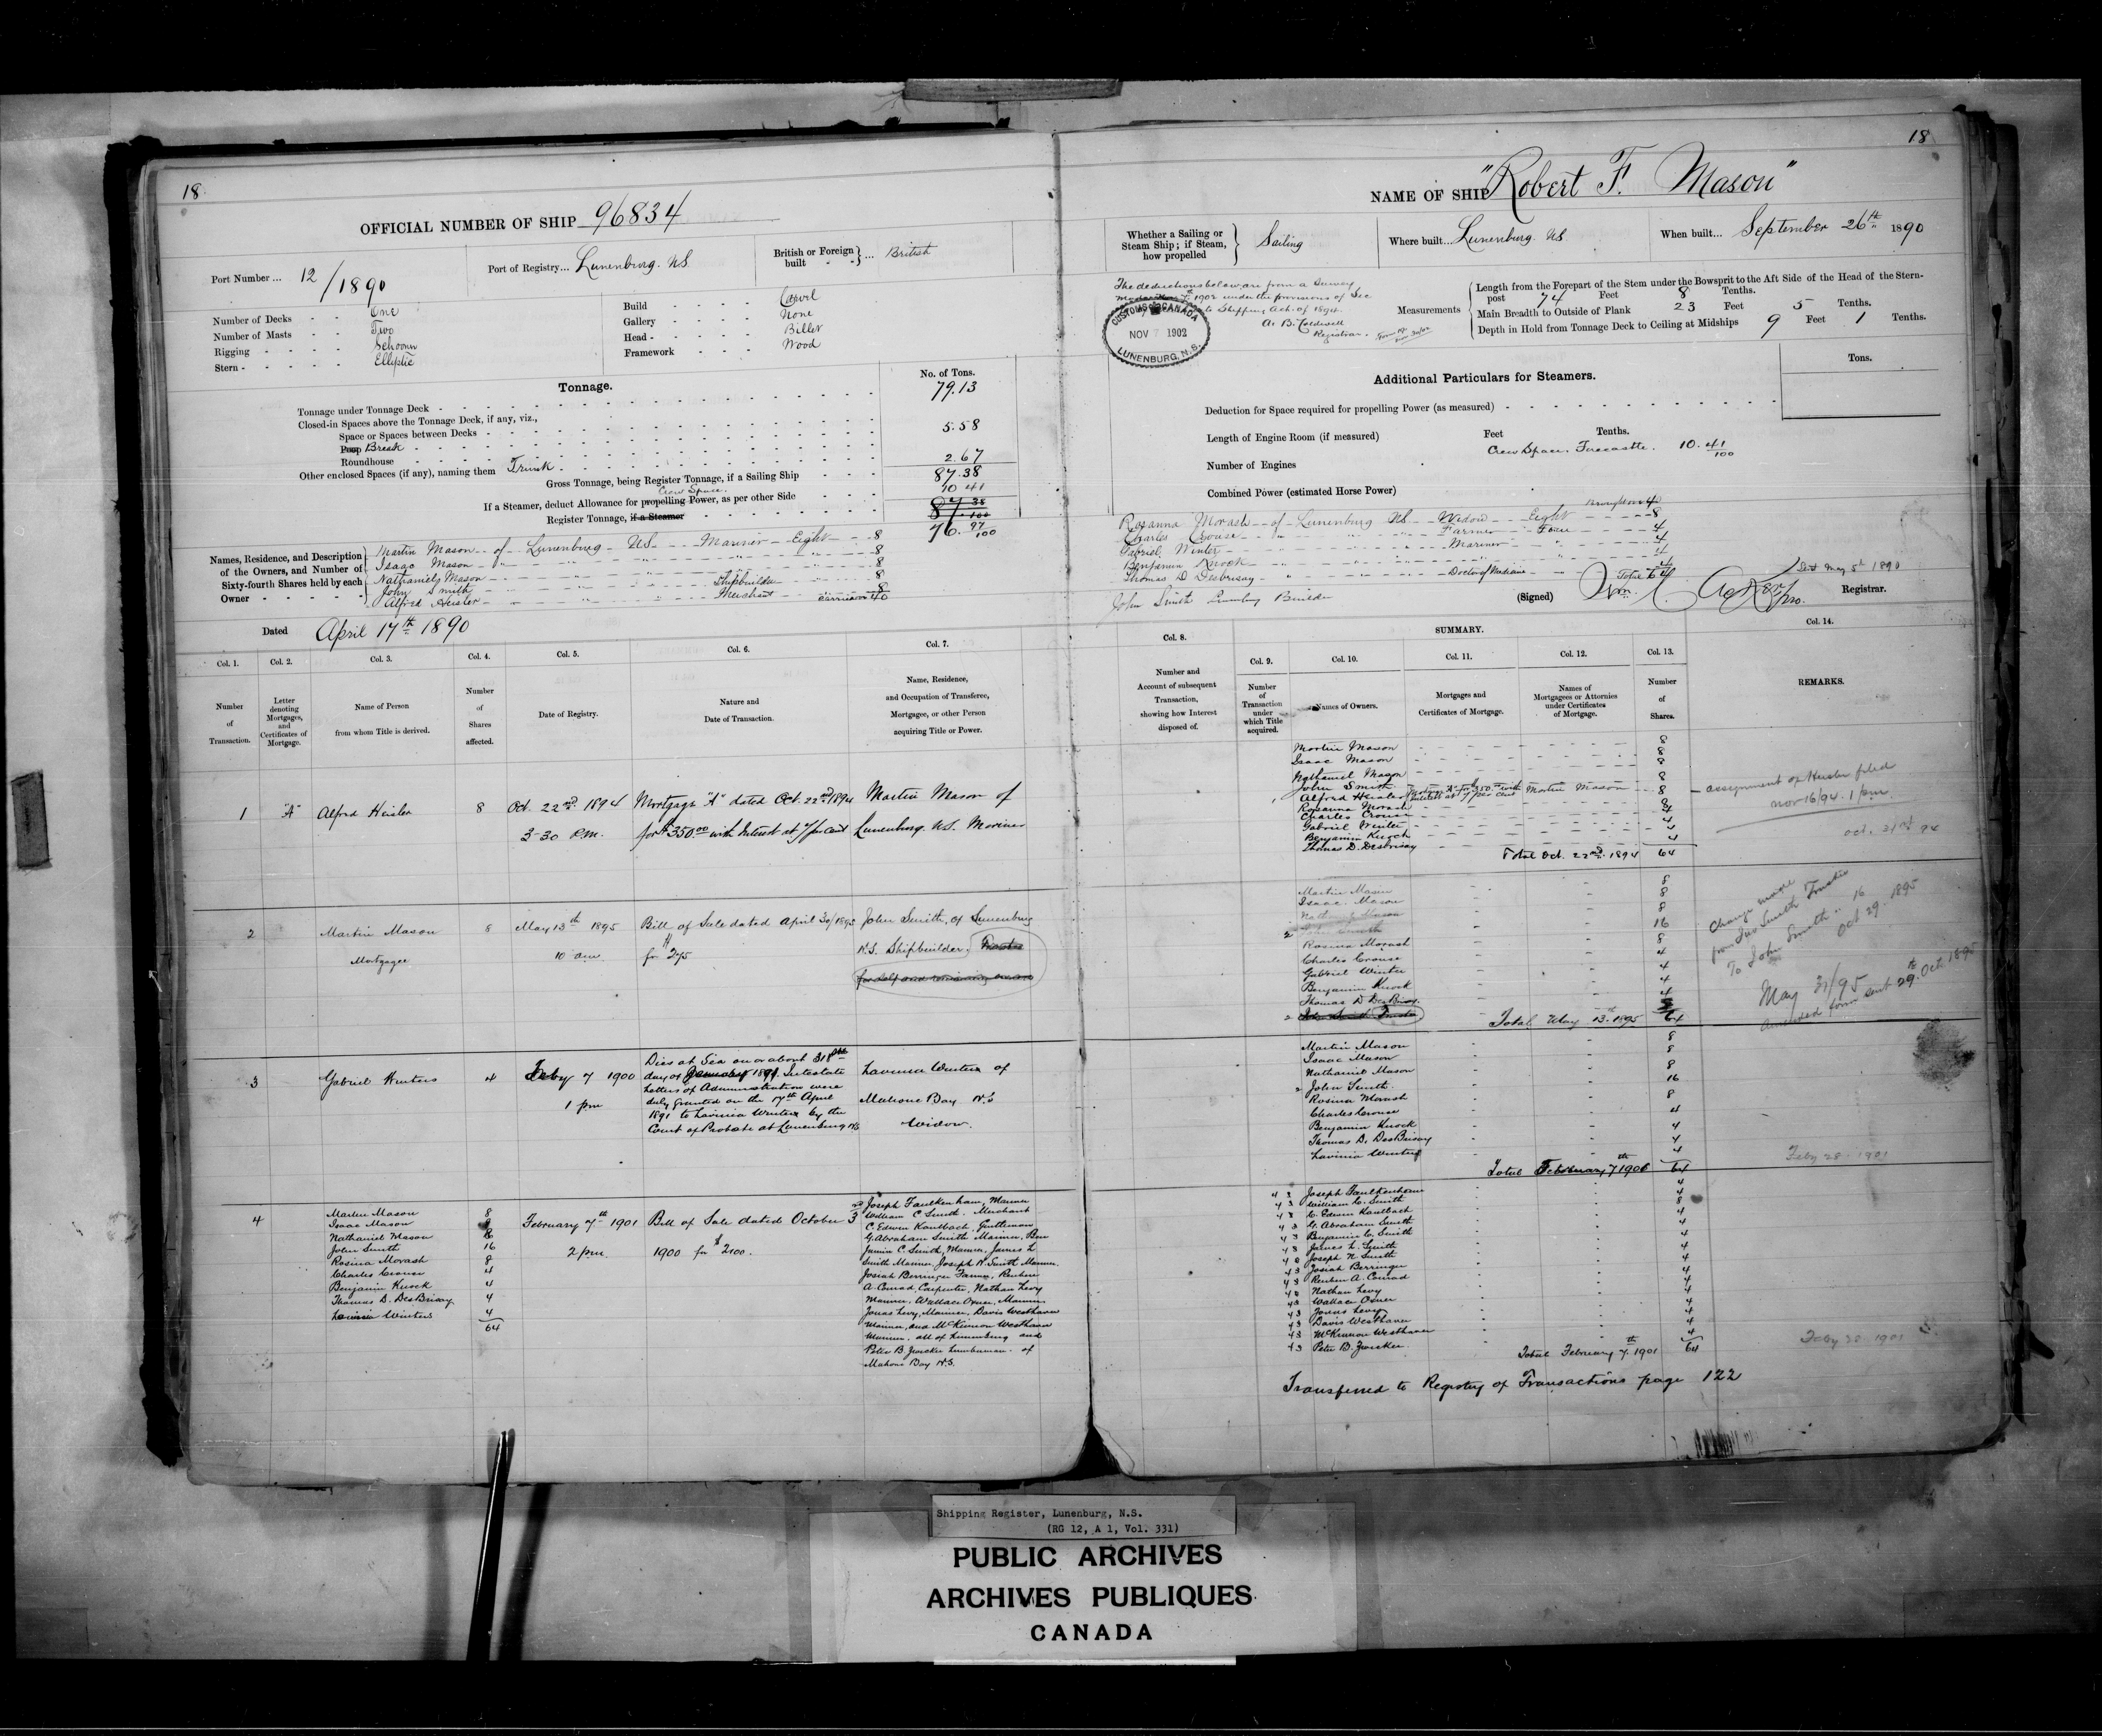 18
OFFICIAL NUMBER OF SHIP 96834
Port Number ... 12/1890
Port of Registry... Lunenburg. N.S.
British or Foreign built } ... British
Number of Decks - - One
Number of Masts - - Two
Rigging - - - - Schooner
Stern - - - - - Elliptic
Build - - - - Carvel
Gallery - - - - None
Head - - - - Billet
Framework - - - Wood
Tonnage.
No. of Tons.
Tonnage under Tonnage Deck - 79.13
Closed-in Spaces above the Tonnage Deck, if any, viz.,
Space or Spaces between Decks -
Poop Break - 5.58
Roundhouse -
Other enclosed Spaces (if any), naming them Trunk - 2.67
Gross Tonnage, being Register Tonnage, if a Sailing Ship - 87.38
Crew Space.
If a Steamer, deduct Allowance for propelling Power, as per other Side - 10 41
Register Tonnage, if a Steamer - 87 38/100
76. 97/100
Names, Residence, and Description of the Owners, and Number of Sixty-fourth Shares held by each Owner - - - -
Martin Mason - of - Lunenburg - N.S. - Mariner - Eight - 8
Isaac Mason - " - " - " - 8
Nathaniel Mason - 8
John Smith - Shipbuilder - 8
Alfred Heisler - Merchant - 8
Carried over 40
Dated April 17th 1890
Col. 1.
Number of Transaction.
Col. 2.
Letter denoting Mortgages, and Certificates of Mortgage.
Col. 3.
Name of Person from whom Title is derived.
Col. 4.
Number of Shares affected.
Col. 5.
Date of Registry.
Col. 6.
Nature and Date of Transaction.
Col. 7.
Name, Residence, and Occupation of Transferee, Mortgagee, or other Person acquiring Title or Power.
1 "A" Alfred Heisler 8 Oct. 22nd 1894 Mortgage "A" dated Oct. 22nd 1894 Martin Mason of
3-30 P.M. for $350.00 with Interest at 7 per cent Lunenburg. N.S. Mariner
2 Martin Mason 8 May 13th 1895 Bill of Sale dated April 30/1895 John Smith, of Lunenburg
Mortgagee 10 am for $275 N.S. Shipbuilder, Trustee
for self and remaining owners
3 Gabriel Winters 4 Feby 7 1900
1 pm
Died at Sea on or about 31st
day of January 1891 Intestate
Letters of Administration were
duly granted on the 17th April
1891 to Lavinia Winters by the
Court of Probate at Lunenburg N.S.
Lavinia Winters of
Mahone Bay N.S
Widow.
4 Martin Mason 8
Isaac Mason 8
Nathaniel Mason 8
John Smith 16
Rosina Morash 8
Charles Crouse 4
Benjamin Knock 4
Thomas D. DesBrisay 4
Lavinia Winters 4
64
February 7th 1901
2 pm
Bill of Sale dated October 3rd
1900 for $2100.
Joseph Faulkenham, Mariner
William C Smith. Merchant
C. Edwin Kaulbach, Gentleman
G. Abraham Smith Mariner, Ben
jamin C. Smith, Mariner, James L
Smith Mariner, Joseph N. Smith Mariner.
Josiah Berringer Farmer, Reuben
A. Conrad, Carpenter, Nathan Levy
Mariner, Wallace Oxner, Mariner
Jonas Levy, Mariner, Davis Westhaver
Mariner, and McKinnon Westhaver
Mariner. all of Lunenburg and
Peter B. Zwicker Lumberman - of
Mahone Bay N.S.
18
NAME OF SHIP "Robert F. Mason"
Whether a Sailing or Steam Ship; if Steam, how propelled } Sailing
Where built... Lunenburg. N.S
When built... September 26th 1890
The deductions below are from a Survey
made Nov 1902 under the provisions of Sec
Shipping Act. of 1894.
A. B. Caldwell
Registrar.
CUSTOMS CANADA
NOV 7 1902
LUNENBURG, N.S.
Measurements
Length from the Forepart of the Stem under the Bowsprit to the Aft Side of the Head of the Stern-post 74 Feet 8 Tenths.
Main Breadth to Outside of Plank 23 Feet 5 Tenths.
Depth in Hold from Tonnage Deck to Ceiling at Midships 9 Feet 1 Tenths.
Additional Particulars for Steamers.
Tons.
Deduction for Space required for propelling Power (as measured) -
Length of Engine Room (if measured) Feet Tenths.
Crew Space. Forecastle. 10. 41/100
Number of Engines
Combined Power (estimated Horse Power)
Brought over 40
Rosanna Morash - of - Lunenburg N.S - Widow - Eight - 8
Charles Crouse - Farmer - Four - 4
Gabriel Winter - Mariner - 4
Benjamin Knock - 4
Thomas D Desbrisay - Doctor of Medicine - 4
Total 64
John Smith Lunenburg Builder
Sent May 5th 1890
(Signed) Registrar.
SUMMARY.
Col. 8.
Number and Account of subsequent Transaction, showing how Interest disposed of.
Col. 9.
Number of Transaction under which Title acquired.
Col. 10.
Names of Owners.
Col. 11.
Mortgages and Certificates of Mortgage.
Col. 12.
Names of Mortgagees or Attornies under Certificates of Mortgage.
Col. 13.
Number of Shares.
Col. 14.
REMARKS.
Martin Mason 8
Isaac Mason 8
Nathaniel Mason 8
John Smith 8
1 Alfred Heisler Mortgage "A" for $350.00 with Interest at 7 per cent Martin Mason 8
Rosanna Morash 8
Charles Crouse 4
Gabriel Winter 4
Benjamin Knock 4
Thomas D. Desbrisay 4
Total Oct. 22nd 1894 64
assignment of Heisler filed
Nov 16/94. 1 p.m.
Oct. 31st 94
Martin Mason 8
Isaac Mason 8
Nathaniel Mason 8
2 John Smith 16
Rosina Morash 8
Charles Crouse 4
Gabriel Winter 4
Benjamin Knock 4
Thomas D DesBrisay 4
2 John Smith Trustee
Total May 13th 1895 64
Change made
from Jno Smith Trustee
To John Smith .. 16
Oct 29. 1895
May 31/95
Amended form sent 29th Oct 1895
Martin Mason 8
Isaac Mason 8
Nathaniel Mason 8
2 John Smith. 16
Rosina Morash 8
Charles Crouse 4
Benjamin Knock 4
Thomas D. DesBrisay 4
Lavinia Winters 4
Total February 7th 1900 64
Feby 28. 1901
4 3 Joseph Faulkenham 4
4 3 William C. Smith 4
4 3 C. Edwin Kaulbach 8
4 3 G. Abraham Smith 4
4 3 Benjamin C. Smith 4
4 3 James L. Smith 4
4 3 Joseph N Smith 4
4 3 Josiah Berringer 4
4 3 Reuben A. Conrad 4
4 3 Nathan Levy 4
4 3 Wallace Oxner 4
4 3 Jonas Levy 4
4 3 Davis Westhaver 4
4 3 McKinnon Westhaver 4
4 3 Peter B. Zwicker. 4
Total February 7th 1901 64
Feby 28 1901
Transferred to Registry of Transactions page 122
Shipping Register, Lunenburg, N.S.
(RG 12, A 1, Vol. 331)
PUBLIC ARCHIVES
ARCHIVES PUBLIQUES
CANADA